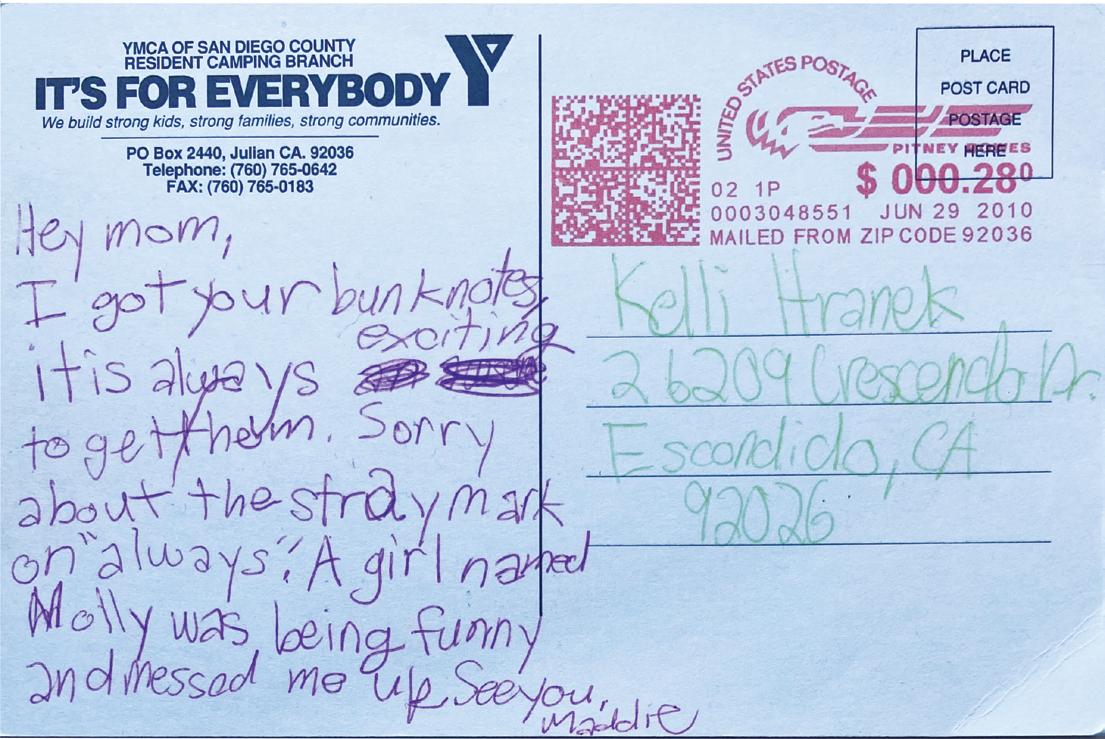 YMCA OF SAN DIEGO COUNTY
RESIDENT CAMPING BRANCH
IT'S FOR EVERYBODY
We build strong kids, strong families, strong communities.
PO Box 2440, Julian CA. 92036
Telephone: (760) 765-0642
FAX: (760) 765-0183
Hey mom,
I got your bunknotes,
exciting
it is always
to get them. Sorry
about the stray mark
on "always". A girl named
Molly was being funny
and messed me up. See you,
Maddie
UNITED STATES POSTAGE
PITNEY BOWES
02 1P $ 000.28⁰
0003048551 JUN 29 2010
MAILED FROM ZIP CODE 92036
PLACE
POST CARD
POSTAGE
HERE
Kelli Hranek
26209 Crescendo Dr.
Escondido, CA
92026